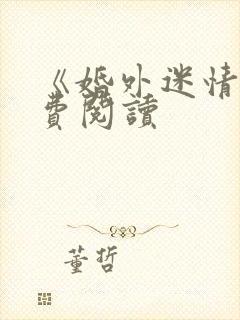 《婚外迷情
費閱讀
董哲